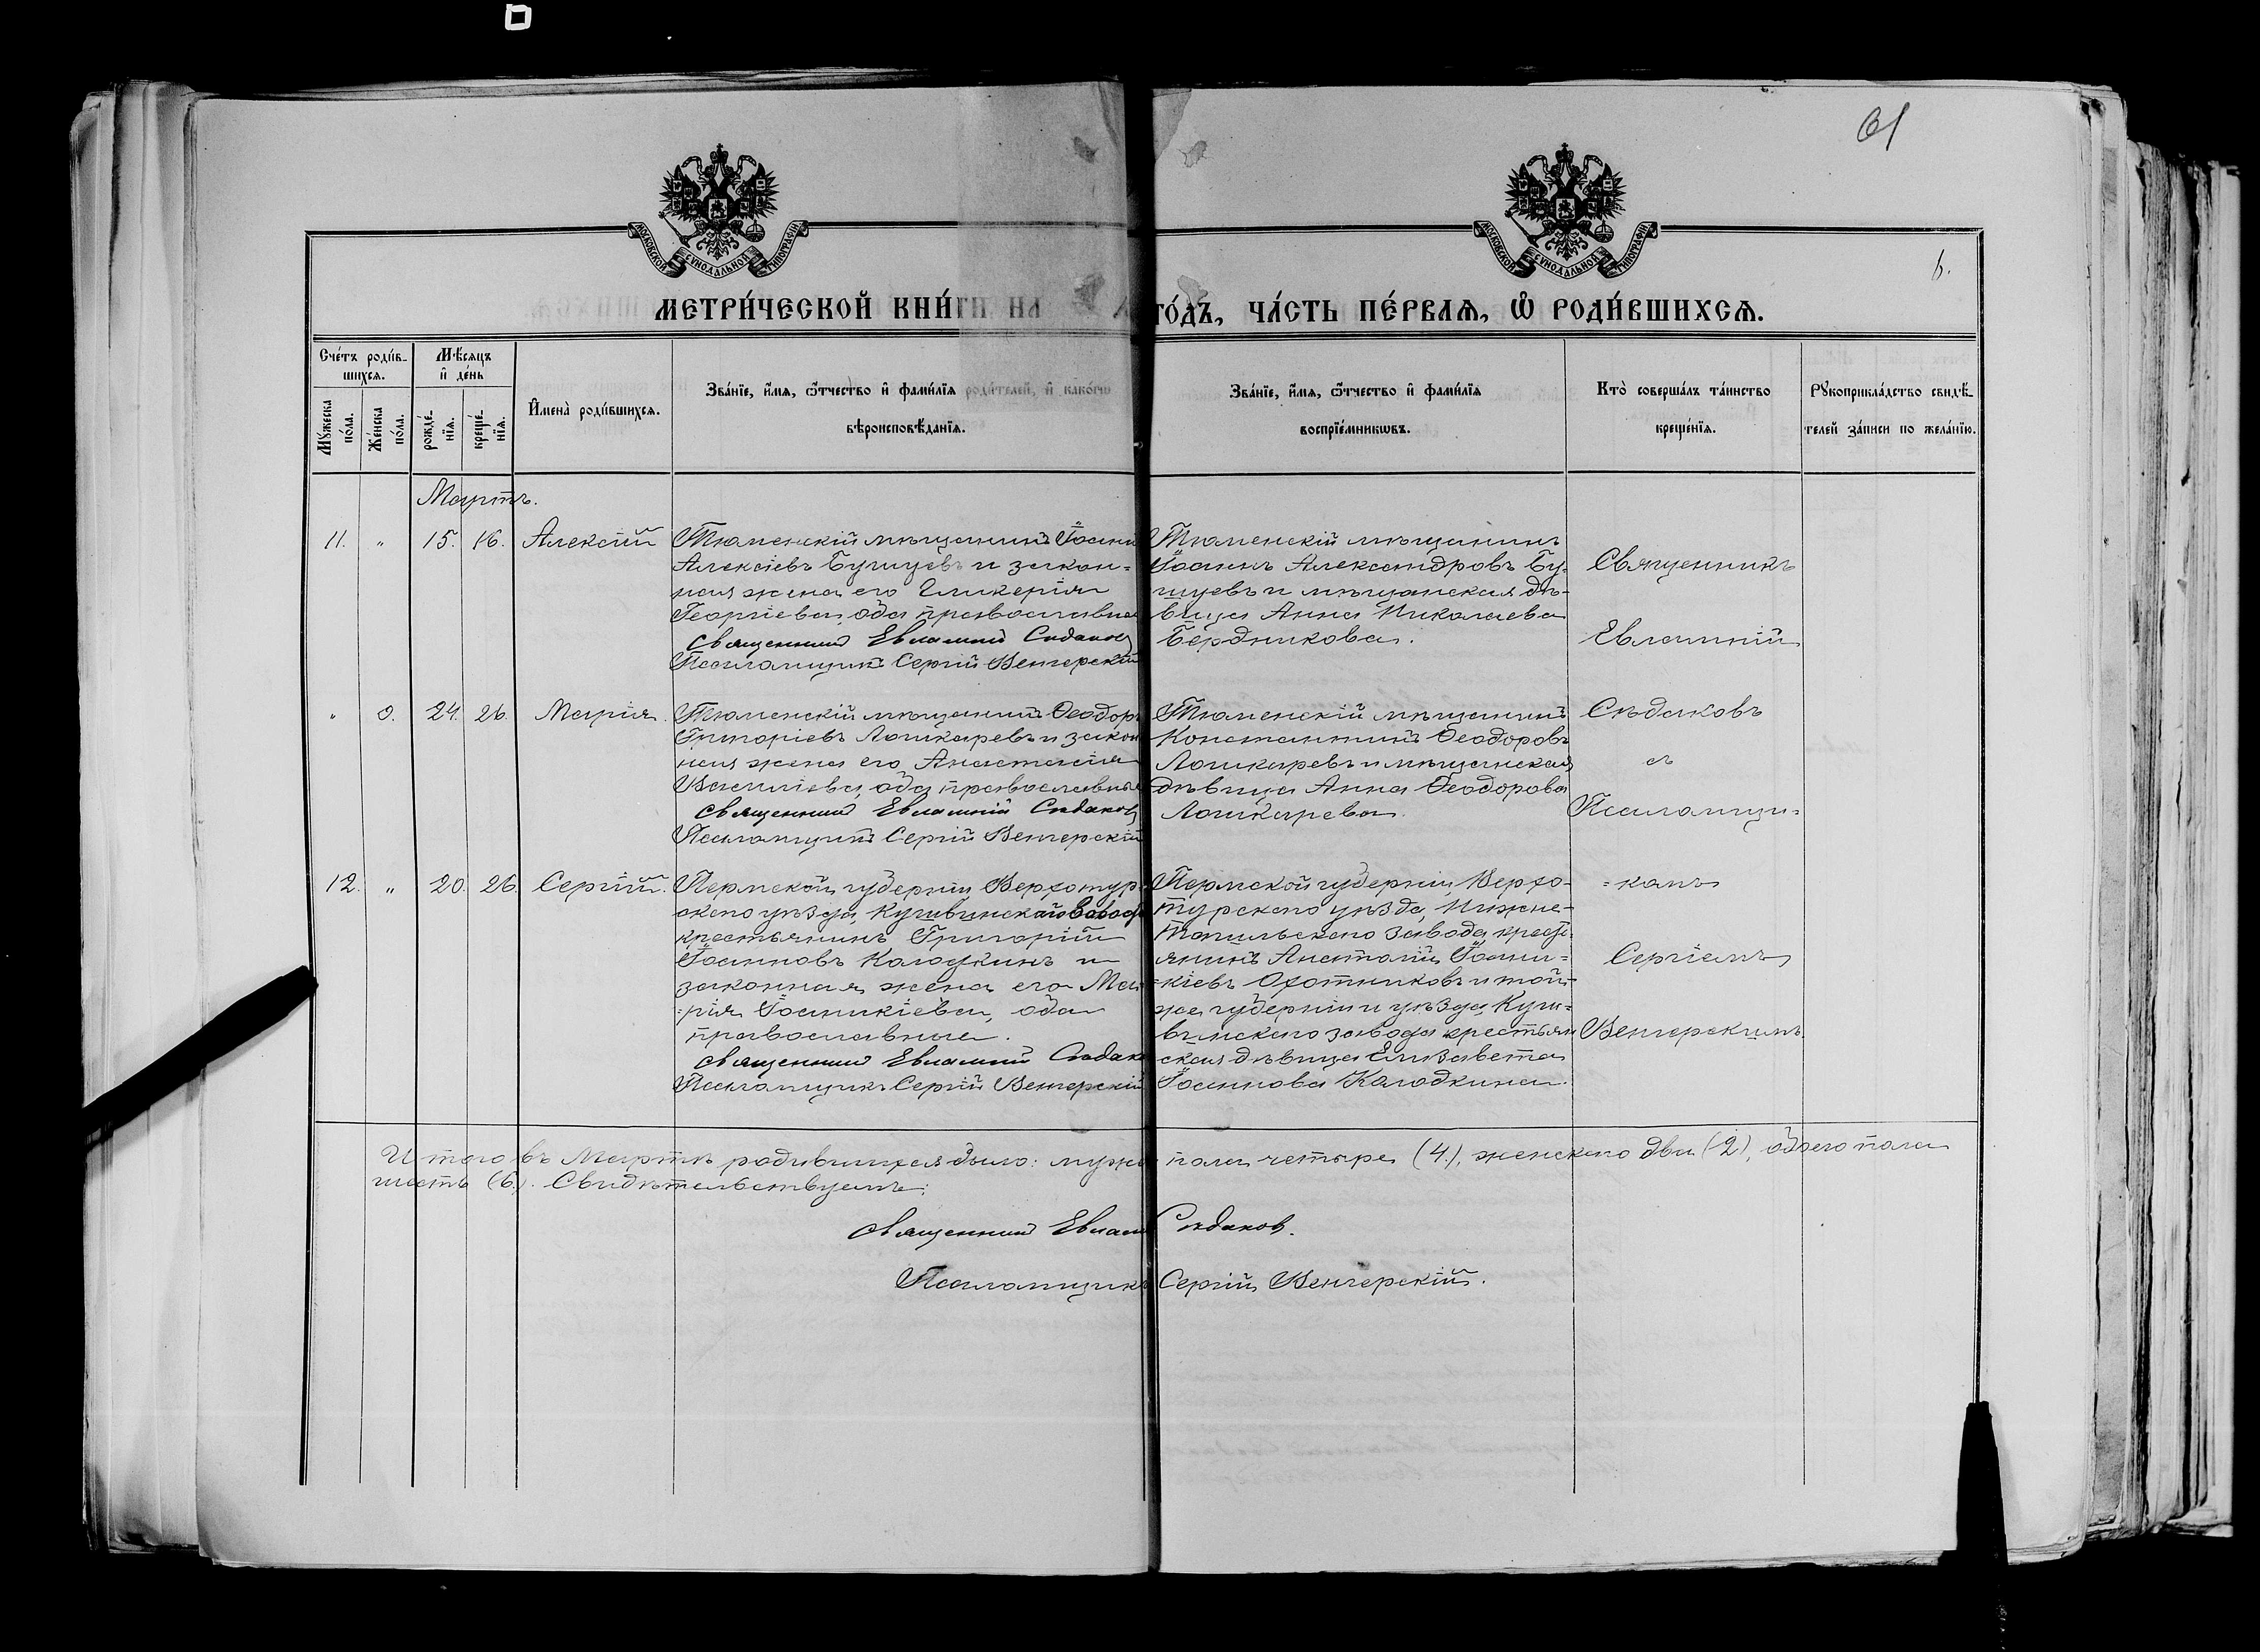 61
6.
МОСКОВСКОЙ СѴНОДАЛЬНОЙ ТИПОГРАФІИ
МОСКОВСКОЙ СѴНОДАЛЬНОЙ ТИПОГРАФІИ
МЕТРИ́ЧЕСКОЙ КНИ́ГИ НА ГО́ДЪ, ЧА́СТЬ ПЕ́РВАѦ, Ѡ҆ РОДИ́ВШИХСѦ.
Сче́тъ роди́в-
шихсѧ.
Мꙋ́жеска по́ла.
Же́нска по́ла.
Мѣ́сѧцъ
и҆ де́нь
рожде́-
нїѧ.
креще́-
нїѧ.
И҆мена̀ роди́вшихсѧ.
Зва́нїе, и҆́мѧ, ѻ҆́тчество и҆ фами́лїѧ роди́телей, и҆ како́гѡ
вѣроисповѣ́данїѧ.
Зва́нїе, и҆́мѧ, ѻ҆́тчество и҆ фами́лїѧ
воспрїе́мникѡвъ.
Кто̀ соверша́лъ та́инство
креще́нїѧ.
Рꙋкоприкла́дство свидѣ́-
телей за́писи по жела́нїю.
Мартъ.
11. " 15. 16. Алексій
Тюменскій мѣщанинъ Іоаннъ
Алексіевъ и закон-
ная жена его Гликерія
Георгіева, оба православные
Священникъ Евлампій Сѣдаковъ
Псаломщикъ Сергій Венгерскій
Тюменскій мѣщанинъ
Іоаннъ Александровъ
и мѣщанская дѣ-
вица Анна Николаева
Бердникова.
Священникъ
Евлампій
" 9. 24. 26. Марія.
Тюменскій мѣщанинъ Ѳеодоръ
Григоріевъ Лошкаревъ и закон
ная жена его Анастасія
Васильева, оба православные
Священникъ Евлампій Сѣдаковъ
Псаломщикъ Сергій Венгерскій
Тюменскій мѣщанинъ
Константинъ Ѳеодоровъ
Лошкаревъ и мѣщанская
дѣвица Анна Ѳеодорова
Лошкарева.
Сѣдаковъ
съ
Псаломщи-
12. " 20. 26. Сергій.
Пермской губерніи Верхотур-
скаго уѣзда, Кушвинскаго завода
крестьянинъ Григорій
Іоанновъ Колодкинъ и
законная жена его Ма-
=рія Іоаникіева, оба
православные.
Священникъ Евлампій Сѣдаковъ
Псаломщикъ Сергій Венгерскій
Пермской губерніи, Верхо-
турскаго уѣзда, Нижне-
Тагильскаго завода, крест-
янинъ Анатолій Іоани-
=кіевъ Охотниковъ и той-
же губерніи и уѣзда, Куш-
винскаго завода крестьян
ская дѣвица Елизавета
Іоаннова Колодкина.
=комъ
Сергіемъ
Венгерскимъ.
Итого въ Мартѣ родившихся было: муже пола четыре (4), женскаго два (2), обоего пола
шесть (6). Свидѣтельствуемъ:
Священникъ Евлам Сѣдаковъ.
Псаломщикъ Сергій Венгерскій.